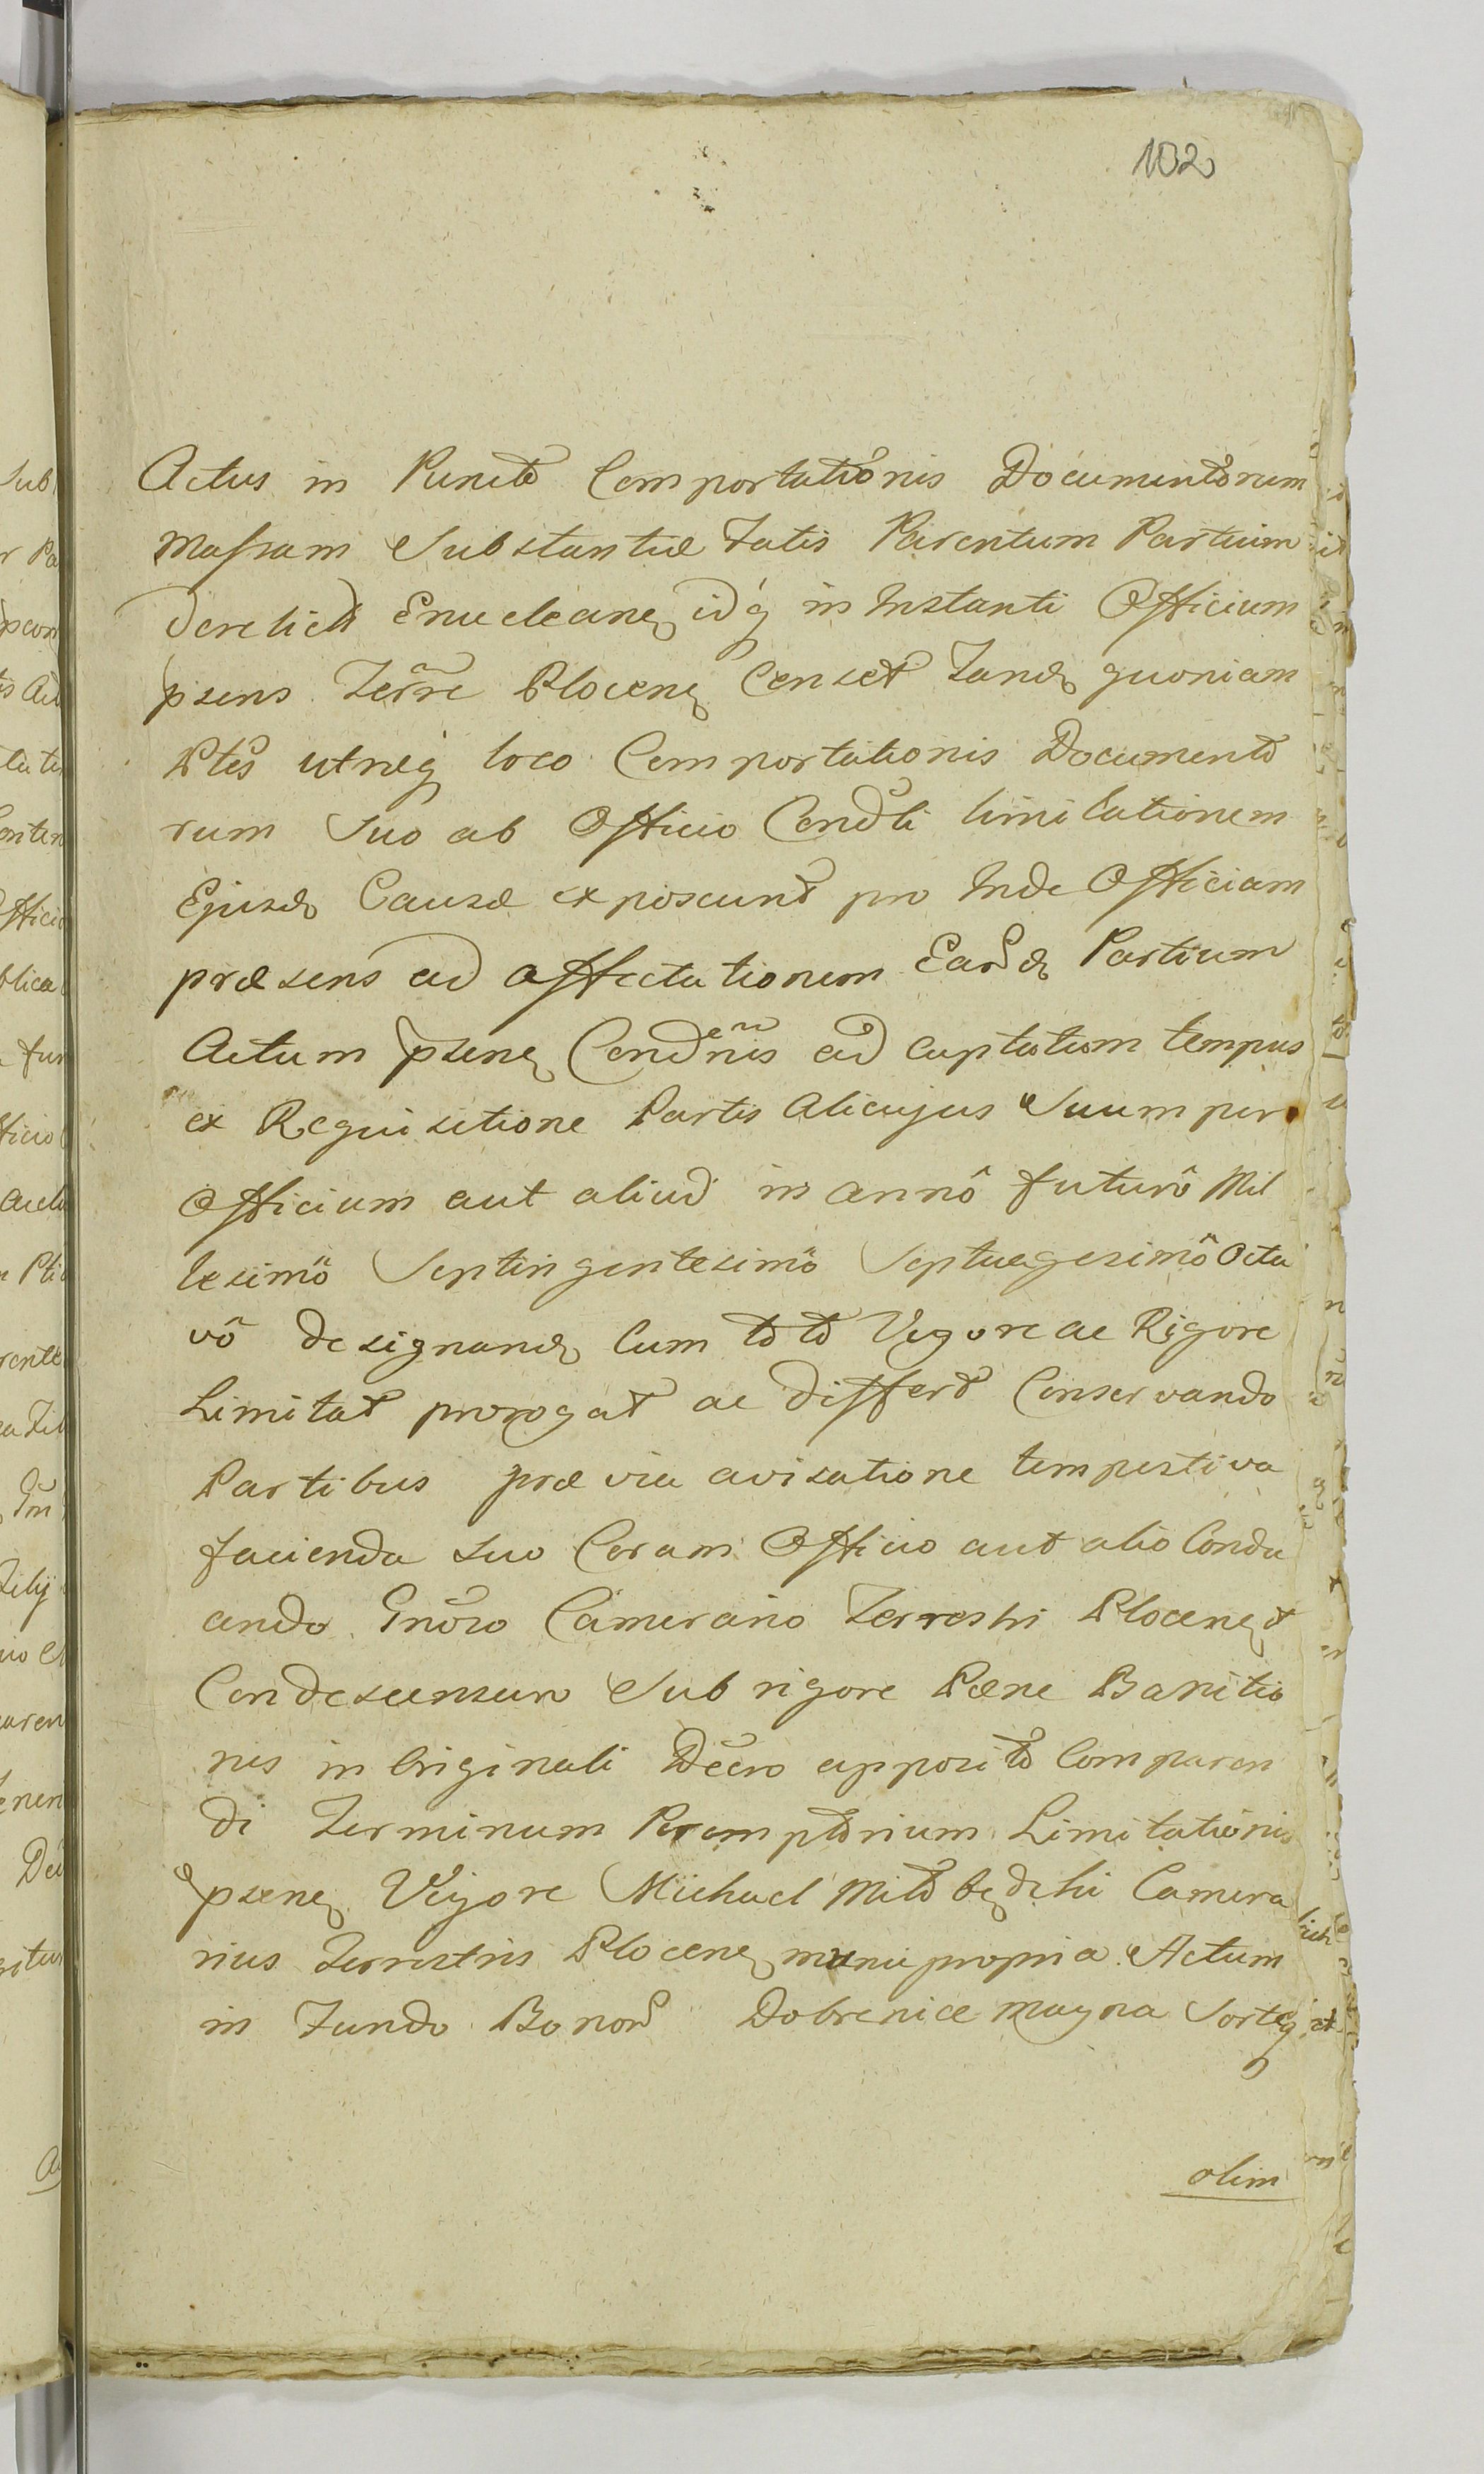 102
Actus in Puncto Comportationis Documentorum
Massam Substantiæ Fatis Parentum Partium
derelicta Enucleanꝫ idq́ in Instanti Officium
psens Terre Plocenꝫ Censet Tandꝫ quoniam
Ptes utræq́ loco Comportationis Documento
rum Suo ab Officio Condli limitationem
Ejusdꝫ Causæ exposcunt pro Inde Officium
præsens ad affectationem Earudꝫ Partium
Actum psenꝫ Condnis ad captatum tempus
ex Requisitione Partis Alicujus Suum per
Officium aut aliud in annô futurô Mil
lesimô Septingentesimô Septuagesimô Octa
vô designandꝫ Cum toto Vigore ac Rigore
Limitat prorogat ac differt Conservando
Partibus prævia avisatione tempestiva
facienda suo Coram Officio aut alio Conda
ando Gnoso Camerario Terrestri Plocenꝫ
Condescensuro Sub rigore Pœne Banitio
nis in Originali Decro apposito Comparen
di Terminum Peremptorium Limitationis
psenꝫ Vigore Michael Camera
rius Terrestris Plocenꝫ manu propria Actum
in Fundo Bonor Dobrenice magna Sorteq
olim